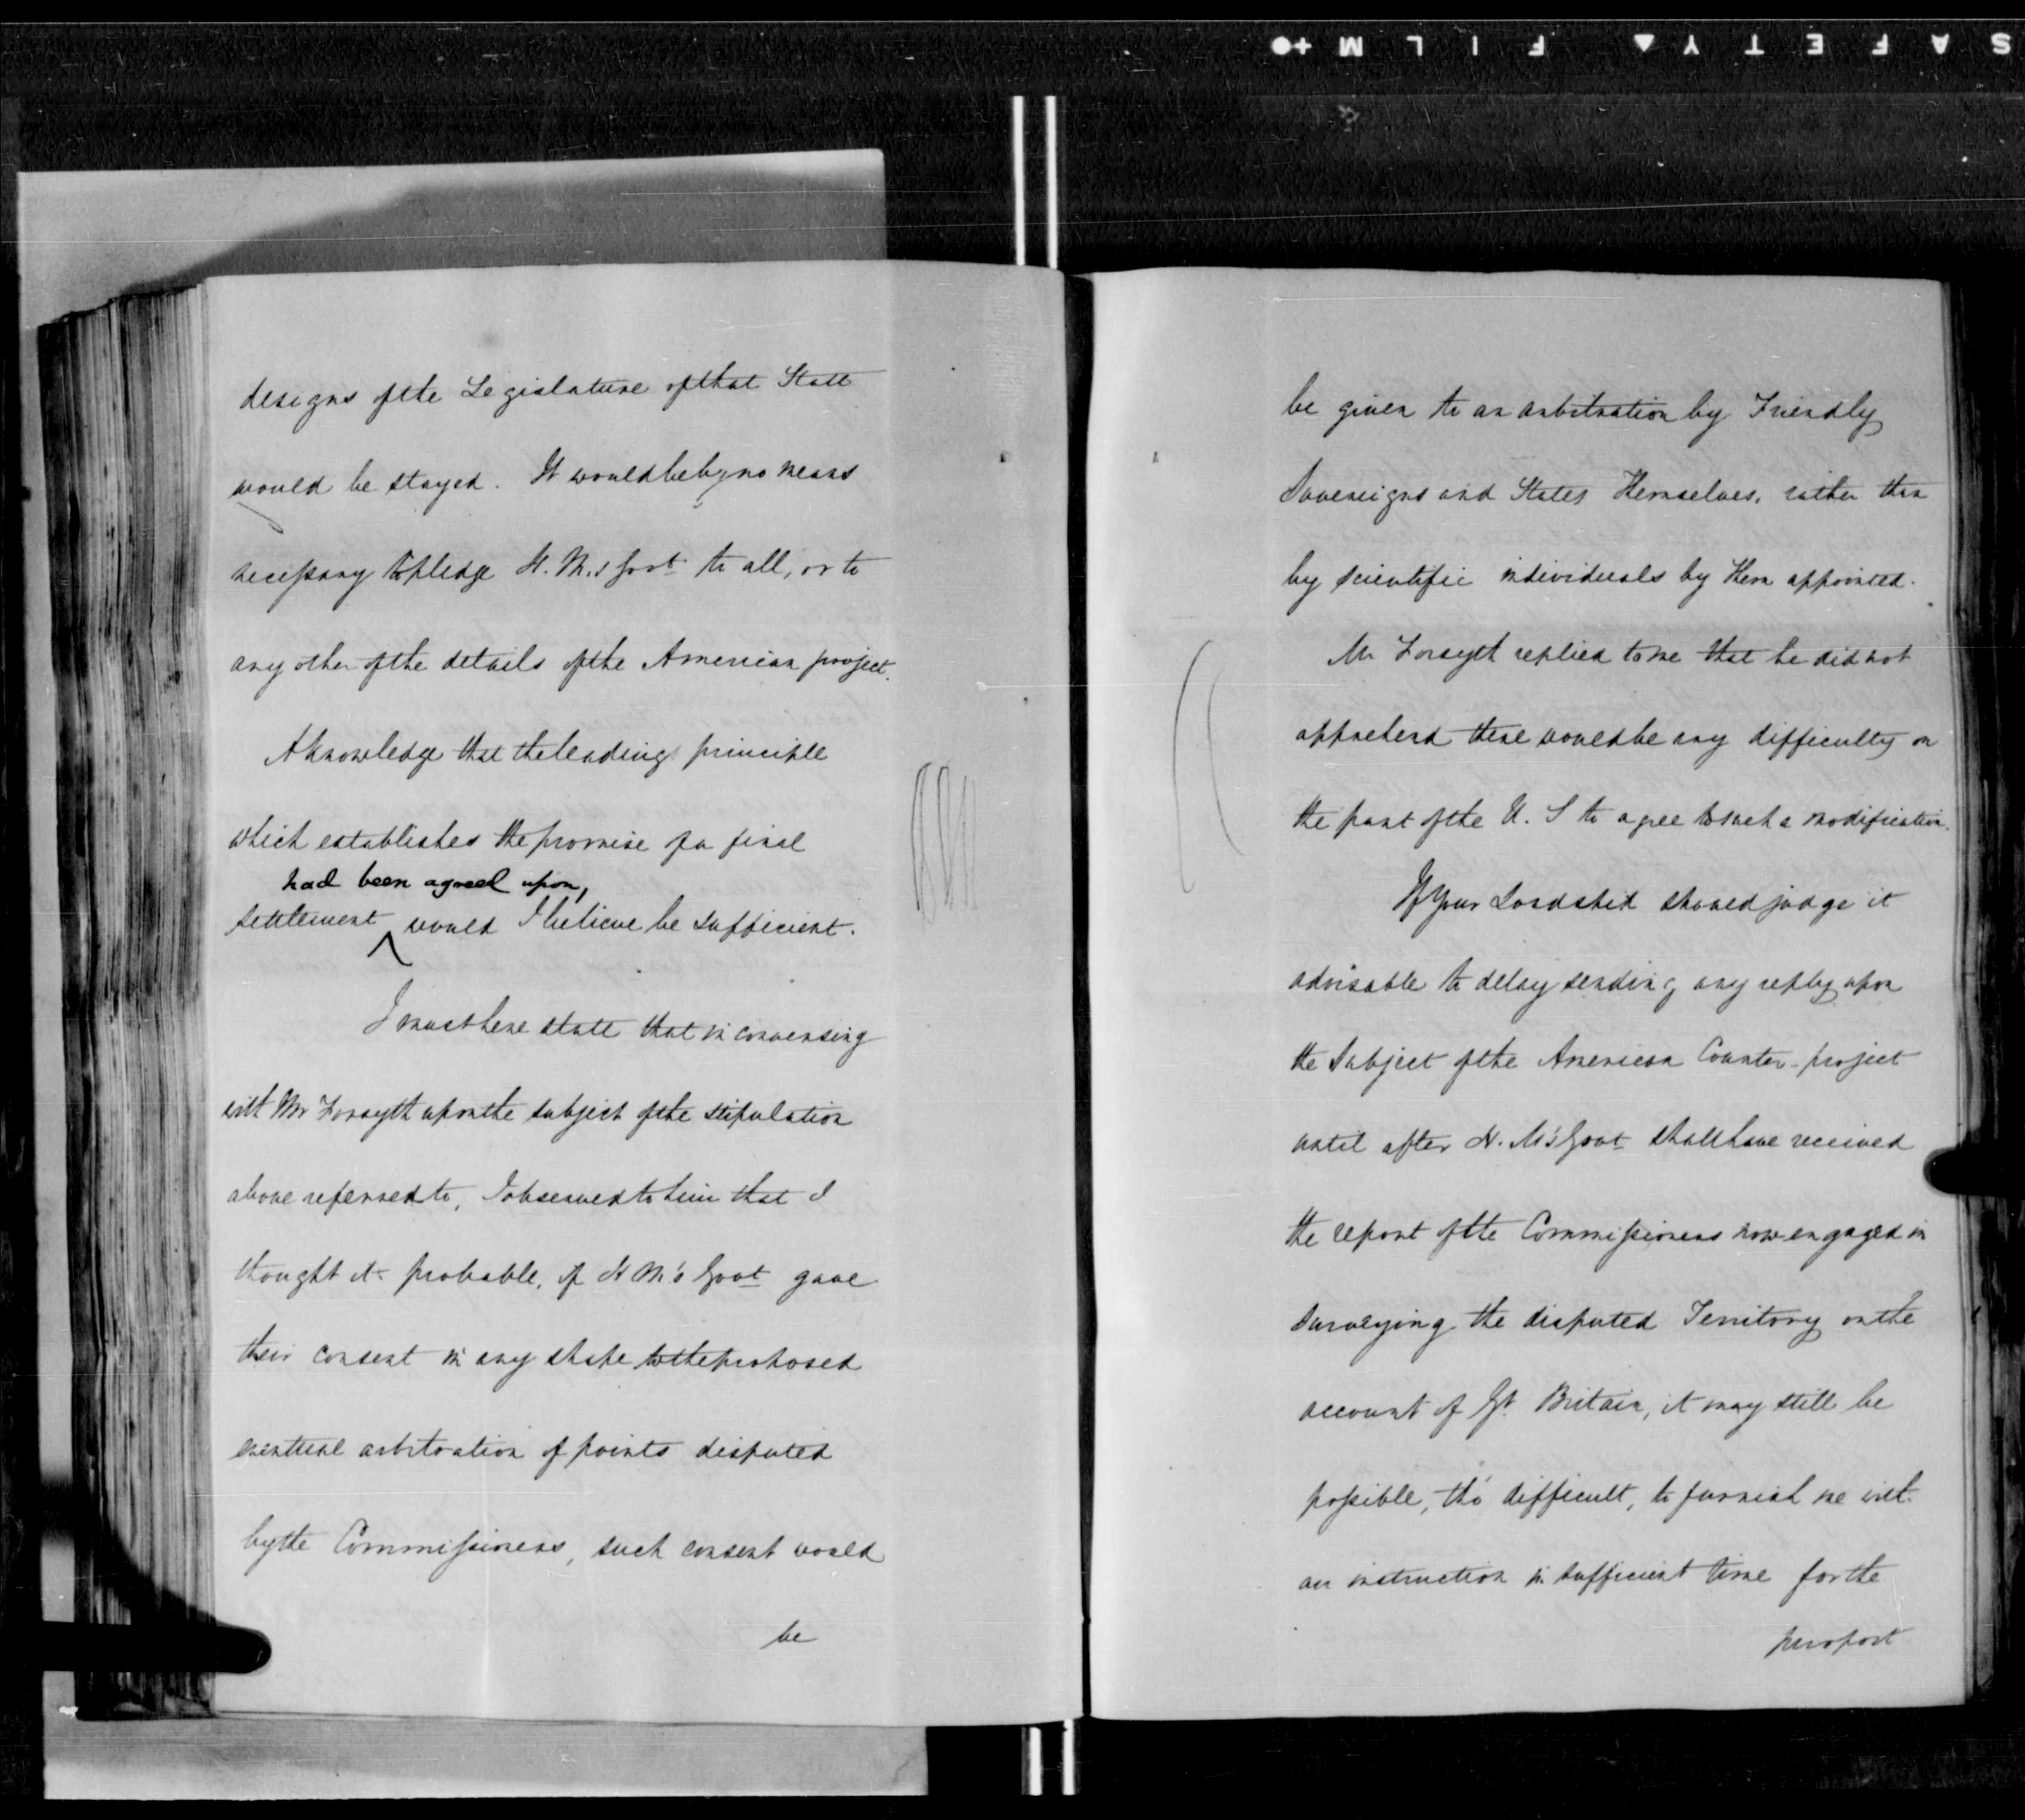 SAFETY FILM
designs of the Legislature of that State
would be stayed. It would be by no means
necessary to pledge H. M.'s Govt to all, or to
any other of the details of the American project.
A knowledge that the leading principle
which establishes the promise of a final
had been agreed upon,
settlement ^ would I believe be sufficient.
I must here state that in conversing
with Mr Forsyth upon the subject of the stipulation
above referred to, I observed to him that I
thought it probable, if H M's Govt gave
their consent in any shape to the proposed
eventual arbitration of points disputed
by the Commissioners, such consent would
be
be given to an arbitration by Friendly
Sovereigns and States Themselves, rather than
by scientific individuals by Them appointed.
Mr Forsyth replied to me that he did not
apprehend there would be any difficulty on
the part of the U. S to agree to such a modification.
If Your Lordship should judge it
advisable to delay sending any reply upon
the subject of the American Counter-project
until after H. M's Govt shall have received
the report of the Commissioners now engaged in
surveying the disputed Territory on the
account of Gt. Britain, it may still be
possible, tho' difficult, to furnish me with
an instruction in sufficient time for the
purport